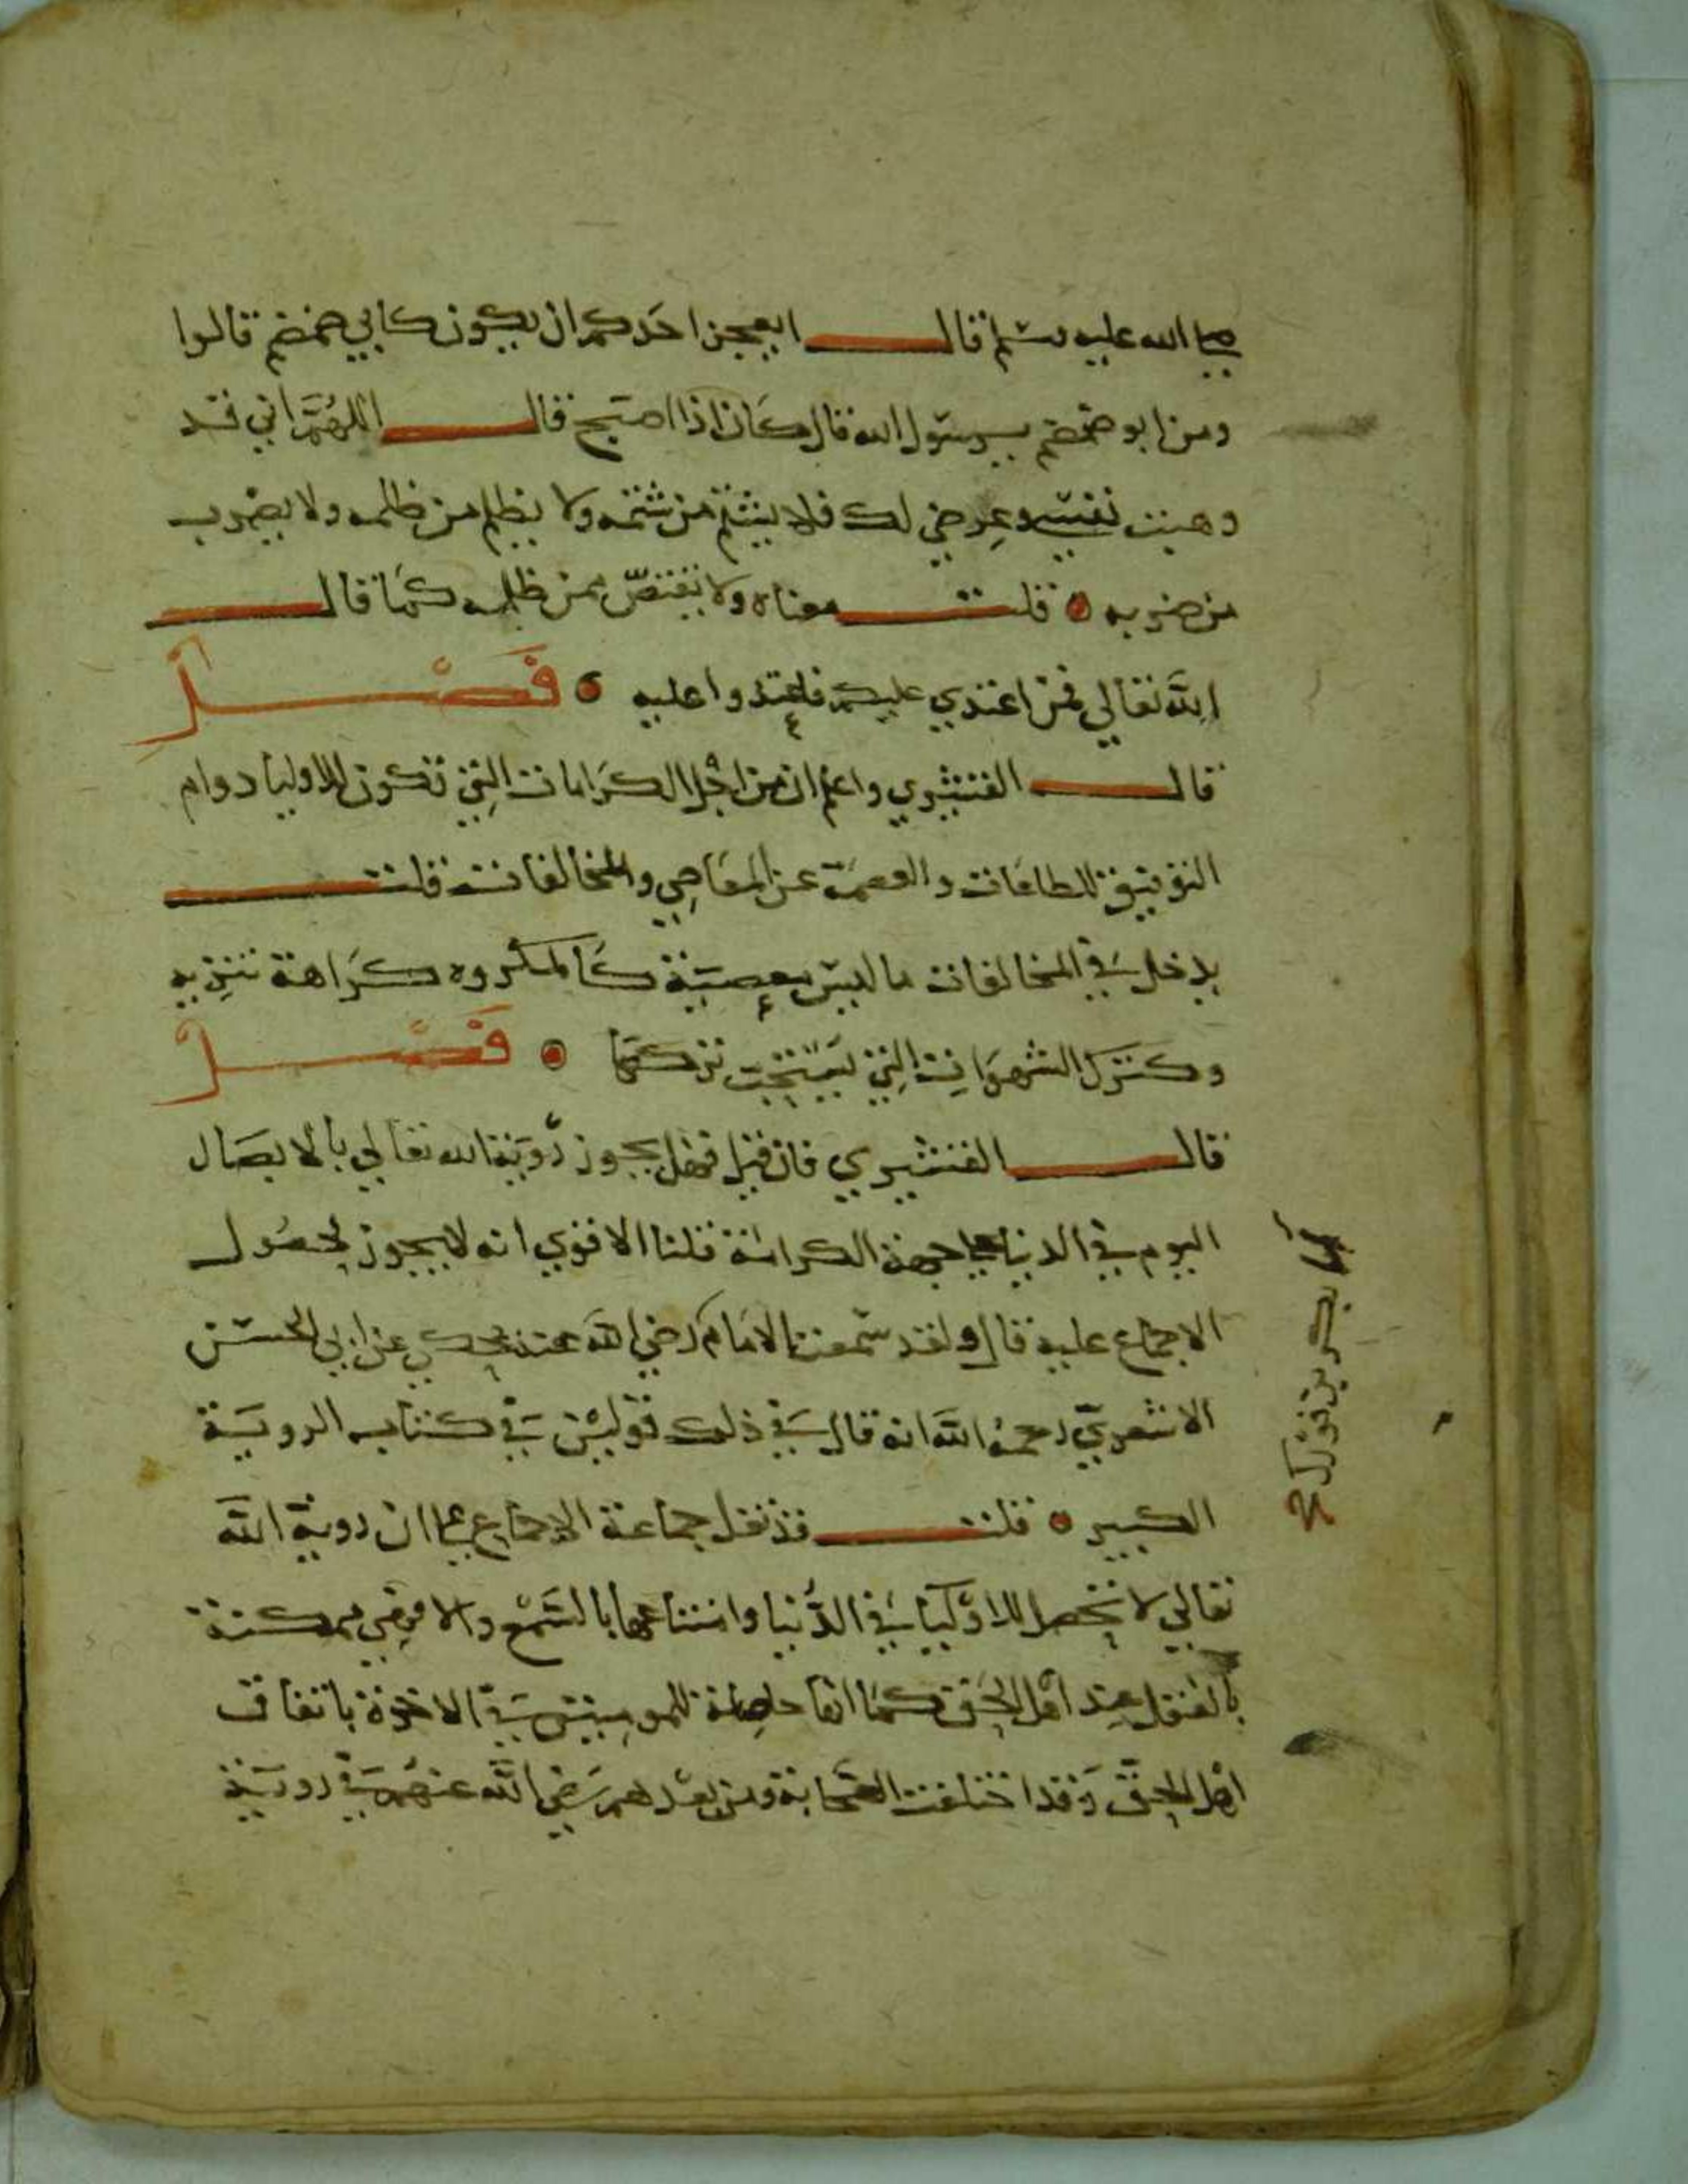 صلى الله عليه وسلم قال ايعجز احدكم ان يكون كابي ضمضم قالوا
ومن ابو ضمضم يرسول الله قال كان اذا اصبح قال اللهُمَّ اني قد
وهبت نفسي وعِرضي لك فلا يشتم من شتمه ولا يظلم من ظلمه ولا يضرب
من ضربه قلت معناه ولا يقتصّ ممن ظلمه كما قال
الله تعالي فمن اعتدي عليكم فاعتدوا عليه فَصْل
قال القشيري واعلم ان من اجل الكرامات التي تكون للاوليا دوام
التوفيق للطاعات والعصمة عن المعاصي والمخالفات قلت
يدخل في المخالفات ما ليس بمعصية كالمكروه كراهة تنزيه
وكترك الشهوات التي يستحب تركها فَصْل
قال القشيري فان قيل فهل يجوز رؤية الله تعالي بالابصار
اليوم في الدنيا على جهة الكرامة قلنا الاقوي انه لا يجوز لحصُول
الاجماع عليه قال ولقد سمعت الامام رضي الله عنه يحكي عن ابي الحسن
الاشعري رحمهُ الله انه قال في ذلك قولين في كتاب الروية
الكبير قلت قد نقل جماعة الاجماع على ان روية الله
تعالي لا تحصل للاوليا في الدُّنيا وامتناعها بالسَّمْع والا فهي ممكنة
بالعقل عند اهل الحق كما انها حاصلة للمومنين في الاخرة باتفاق
اهل الحق وقد اختلفت الصحابة ومن بعدهم رَضي الله عنهم في روية
ابي بكر بن فورك